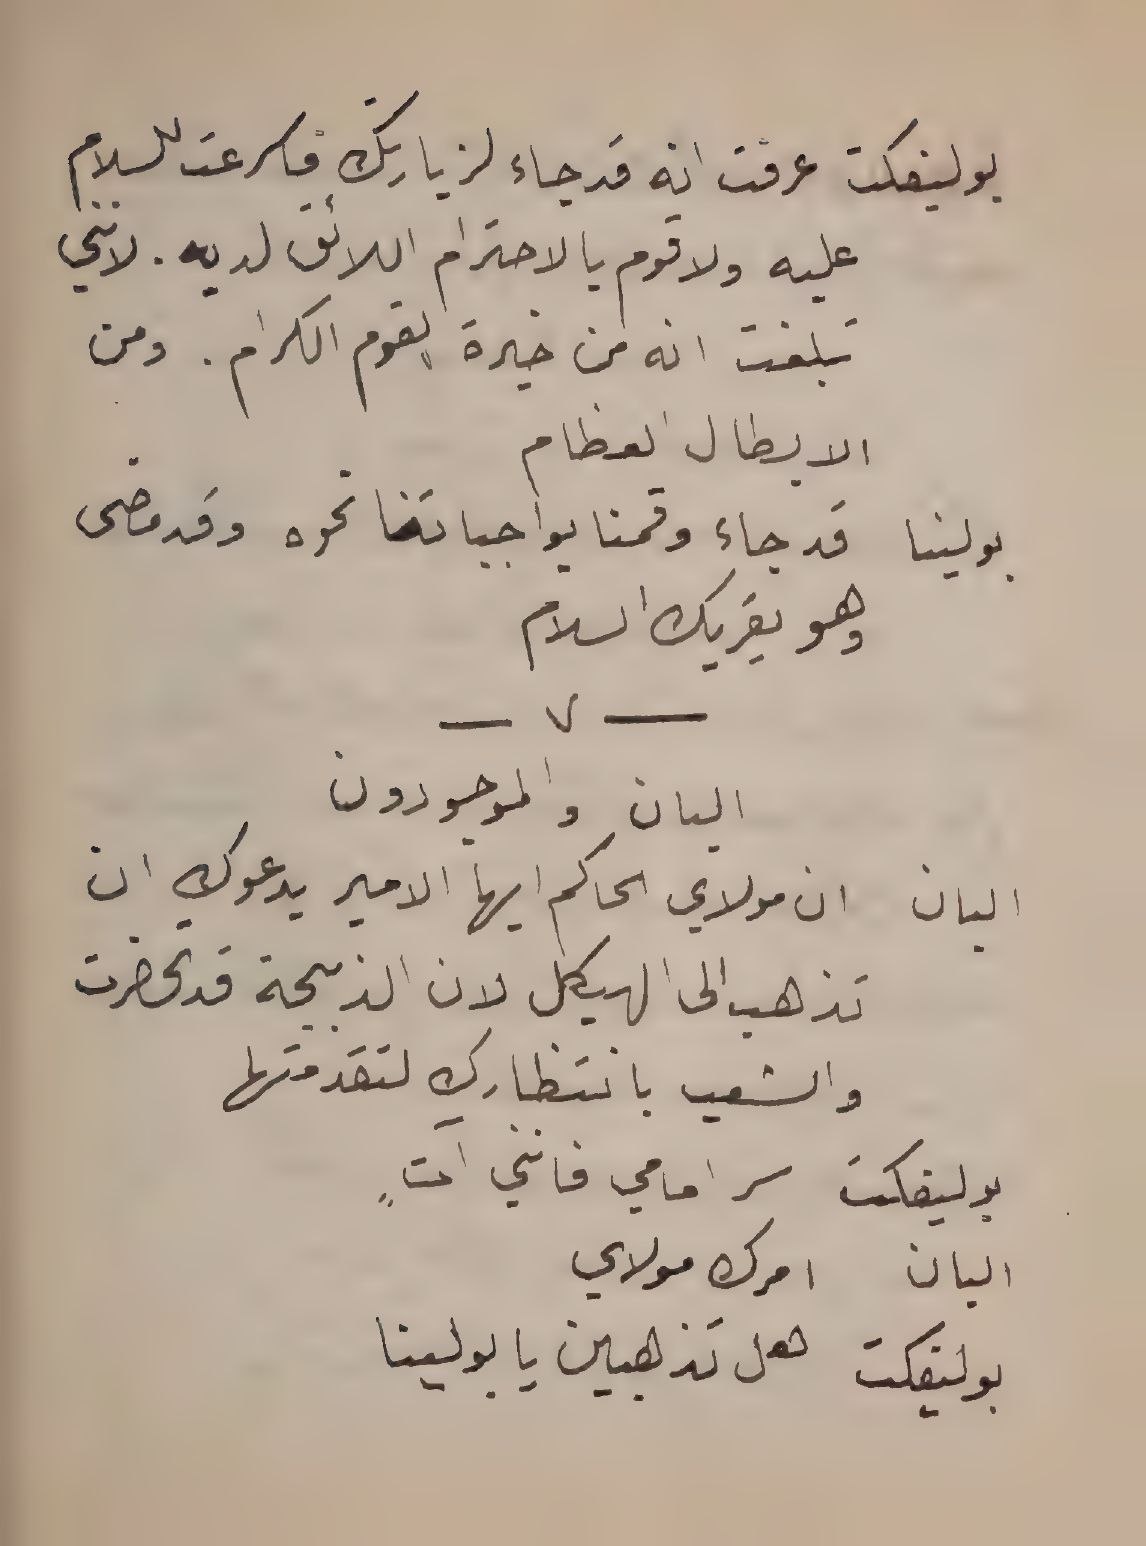 بوليفكت عرفت انه قد جاء لزيارتك فاسرعت للسلام
عليه ولاقوم بالاحترام اللائق لديه. لانني
تبلغت انه من خيرة القوم الكرام. ومن
الابطال العظام
بولينا قد جاء وقمنا بواجباتنا نحوه وقد مضى
وهو يقريك السلام
— ٧ —
البان والموجودون
البان ان مولاي الحاكم ايها الامير يدعوك ان
تذهب الى الهيكل لان الذبيحة قد تحضرت
والشعب بانتظارك لتقدمتها
بوليفكت سر امامي فانني آت
البان امرك مولاي
بوليفكت هل تذهبين يا بولينا